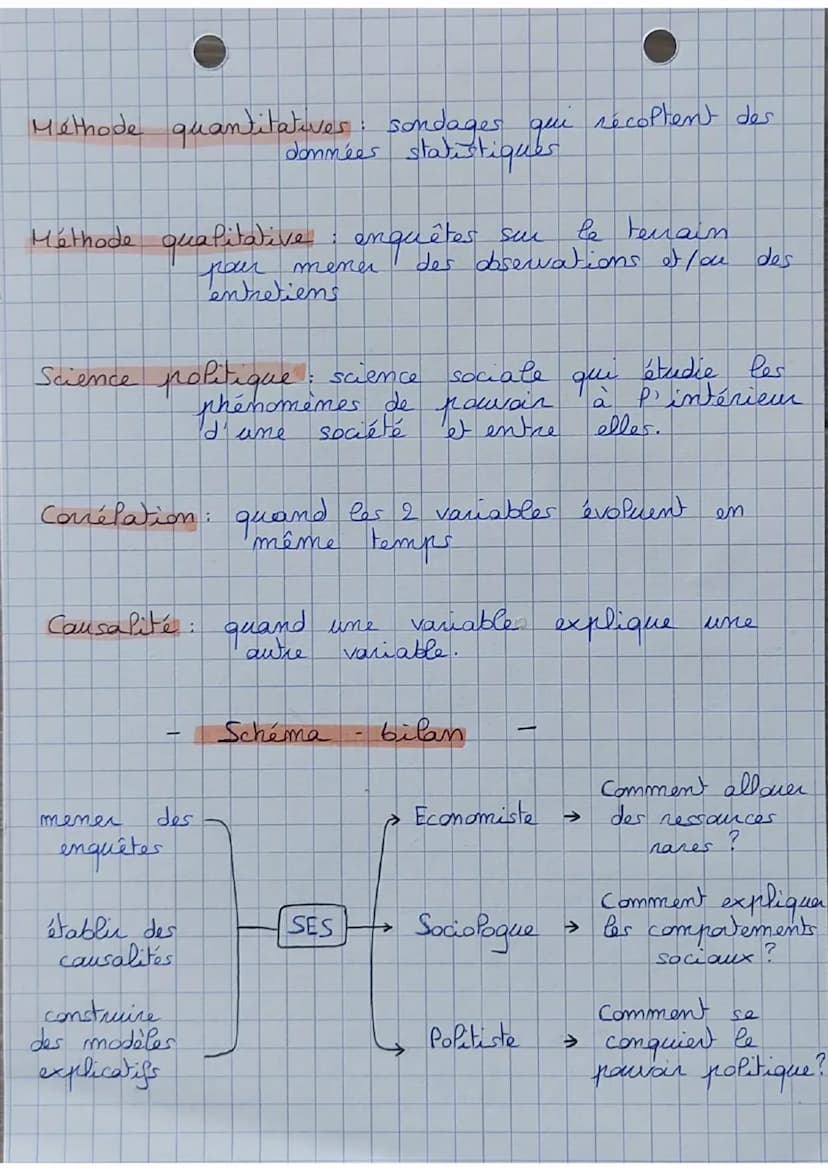 Méthode quantitatives : sondages qui récoltent des
données statistiques
Méthode qualitative : enquêtes sur le terrain
pour mener des observations et/ou des
entretiens
Science politique : science sociale qui étudie les
phénomèmes de pouvoir à l'intérieur
d'une société et entre elles.
Corrélation : quand les 2 variables évoluent en
même temps
Causalité : quand une variable explique une
autre variable.
- Schéma - bilan -
mener des
enquêtes
établir des
causalités
construire
des modèles
explicatifs
SES
→ Economiste →
Comment allouer
des ressources
rares ?
→ Sociologue →
Comment expliquer
les comportements
sociaux ?
→ Politiste →
Comment se
conquiert le
pouvoir politique?